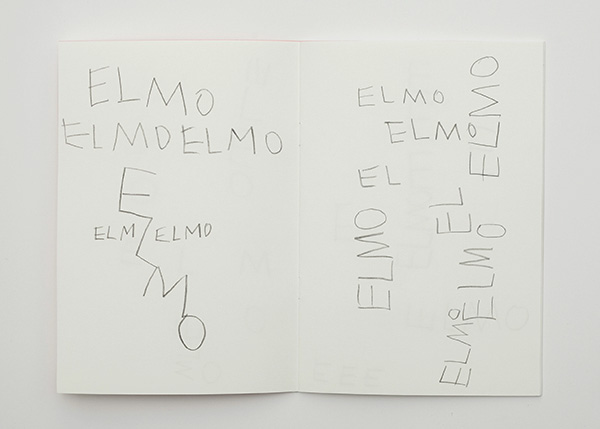 ELMO
ELMO ELMO
ELMO
ELM
ELMO
ELMO
ELMO
ELMO
EL
ELMO
EL
ELMO
ELMO